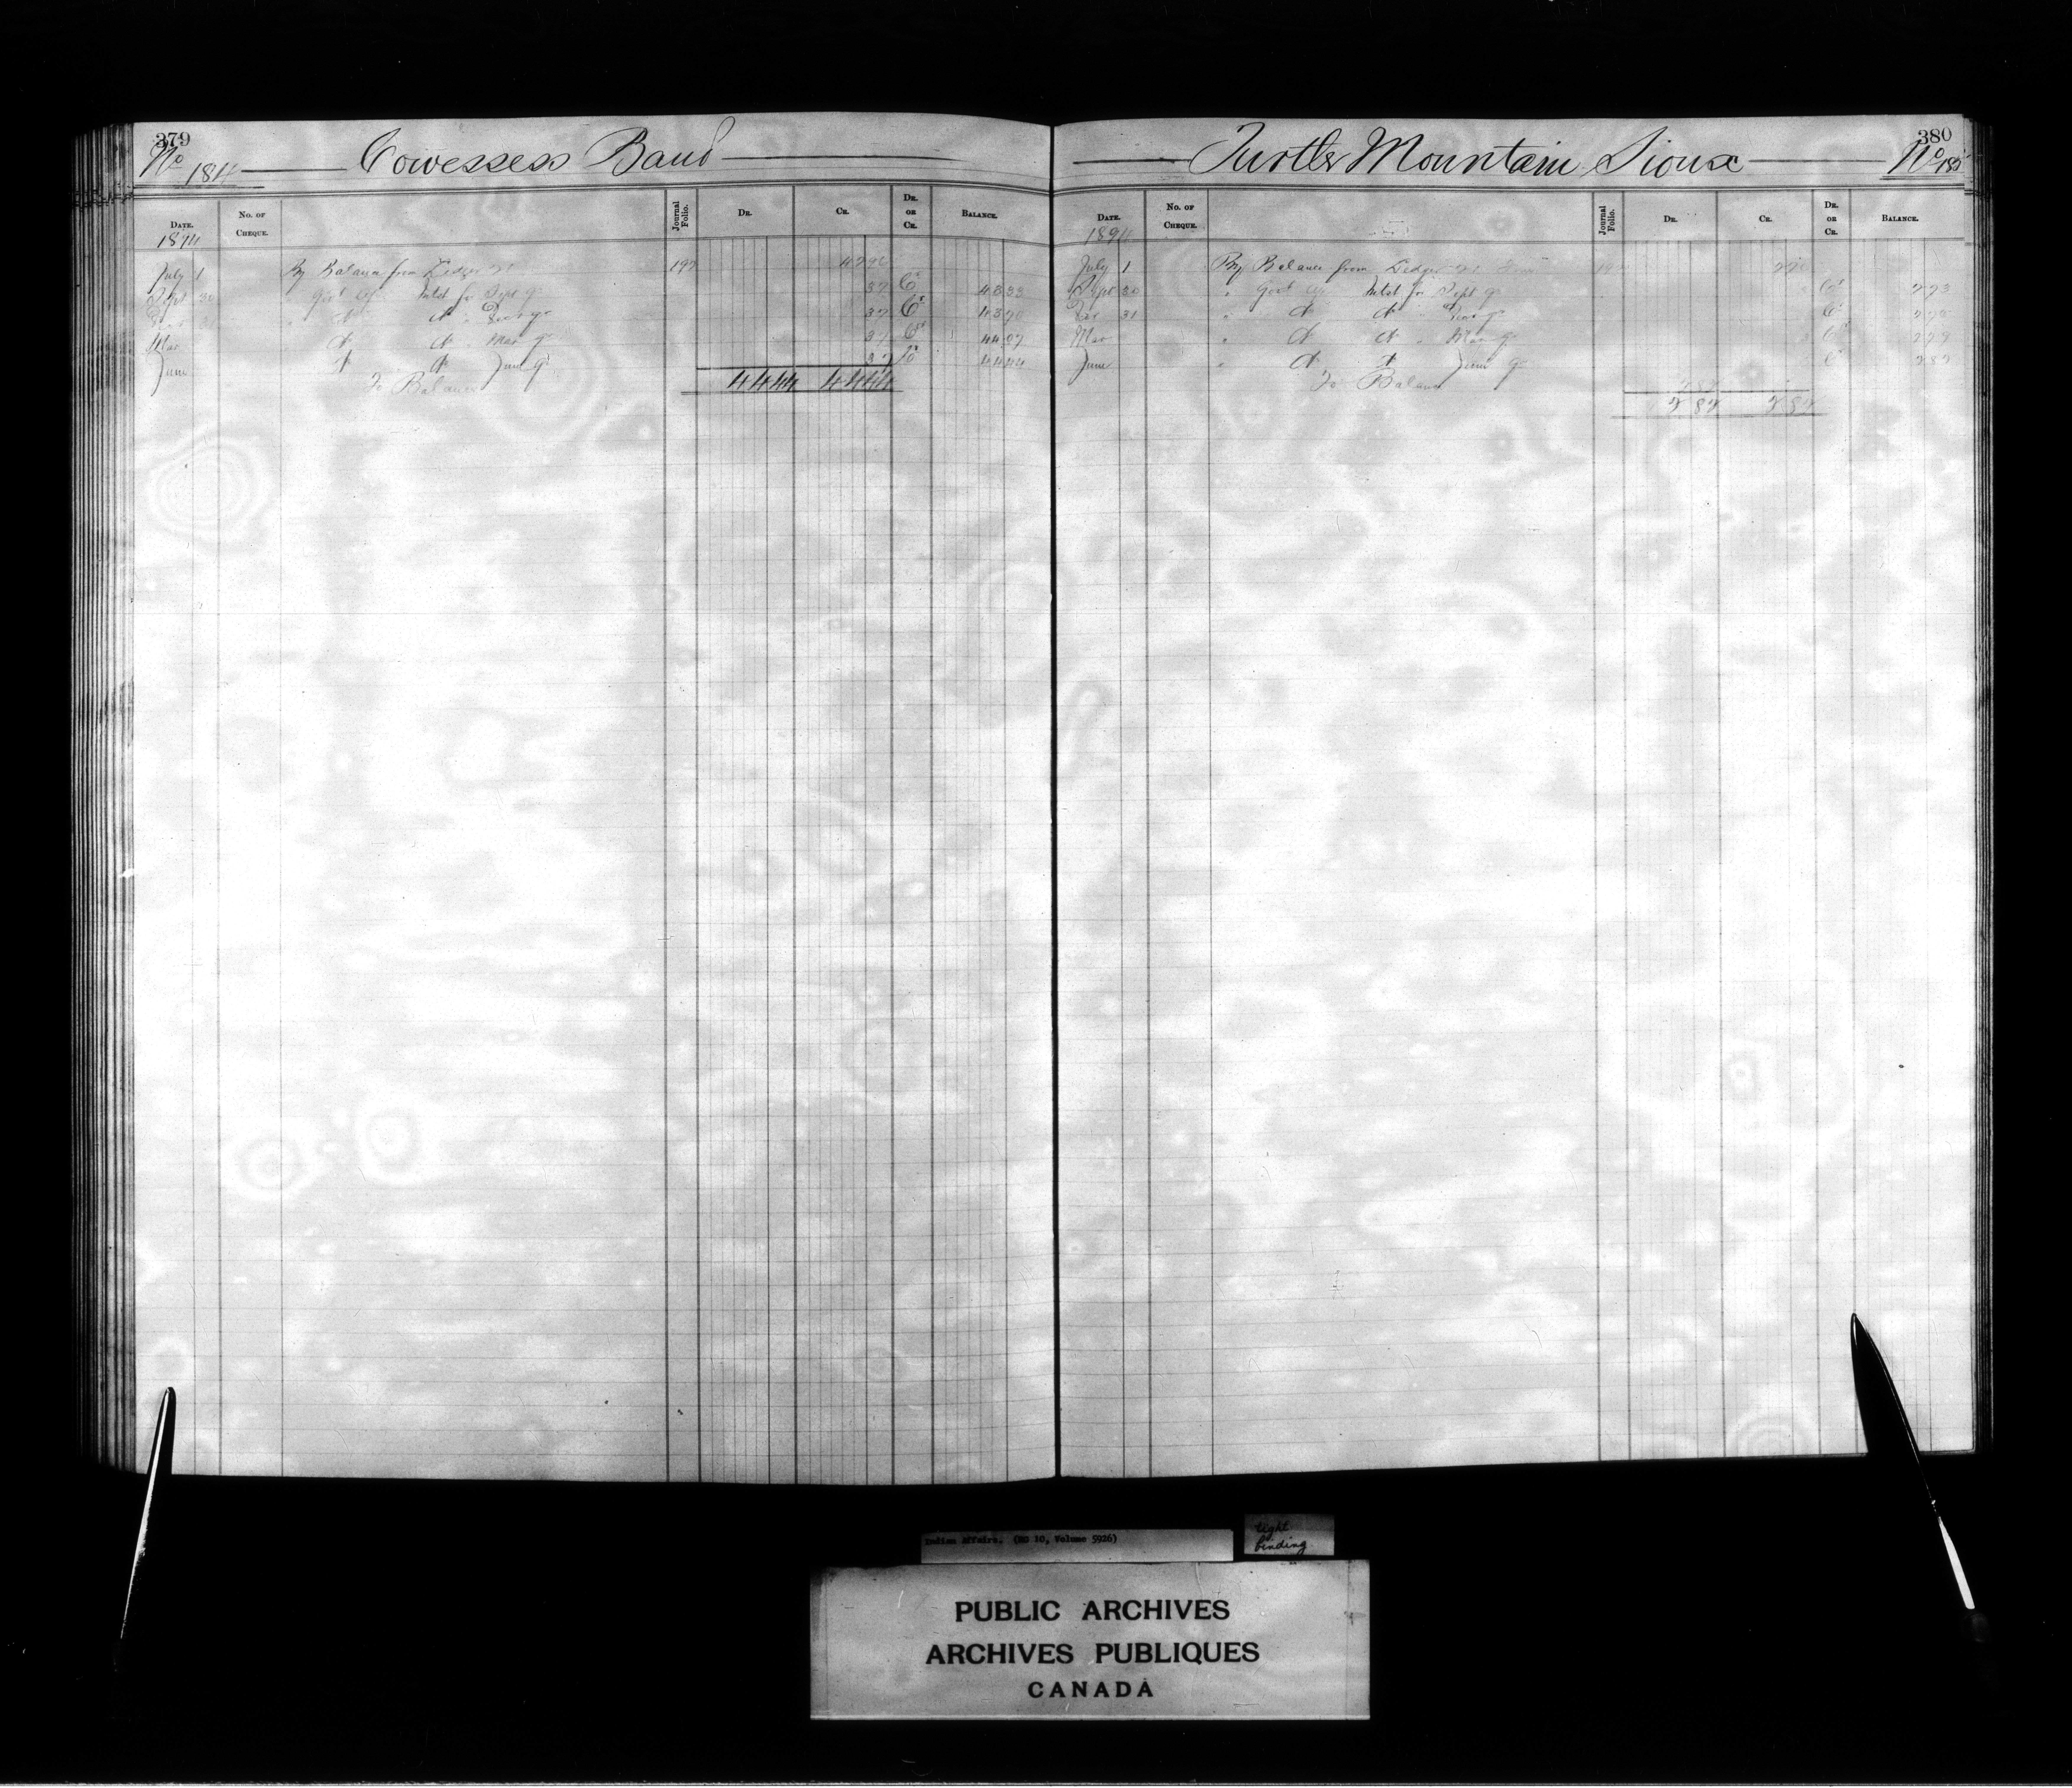 379
No 184 Cowessess Band
DATE. No. OF CHEQUE. Journal Folio. DR. CR. DR. or CR. BALANCE.
1894
July 1 By Balance from Ledger 197 4296
Sept 30 " Govt a/c Intst for Sept qr 37 Cr 4333
" do do " Decr qr 37 Cr 4370
Mar do do " Mar qr 37 Cr 4407
June do do June qr 37 Cr 4444
To Balance
4444 4444
380
Turtle Mountain Sioux No 185
DATE. No. OF CHEQUE. Journal Folio. DR. CR. DR. or CR. BALANCE.
1894
July 1 By Balance from Ledger
Sept 30 " Govt a/c Intst for Sept qr Cr 273
Dec 31 " do do Decr qr Cr
Mar " do do " Mar qr Cr 279
June " do do June qr Cr 282
To Balance
282 282
Indian Affairs. (RG 10, Volume 5926)
tight
binding
PUBLIC ARCHIVES
ARCHIVES PUBLIQUES
CANADA